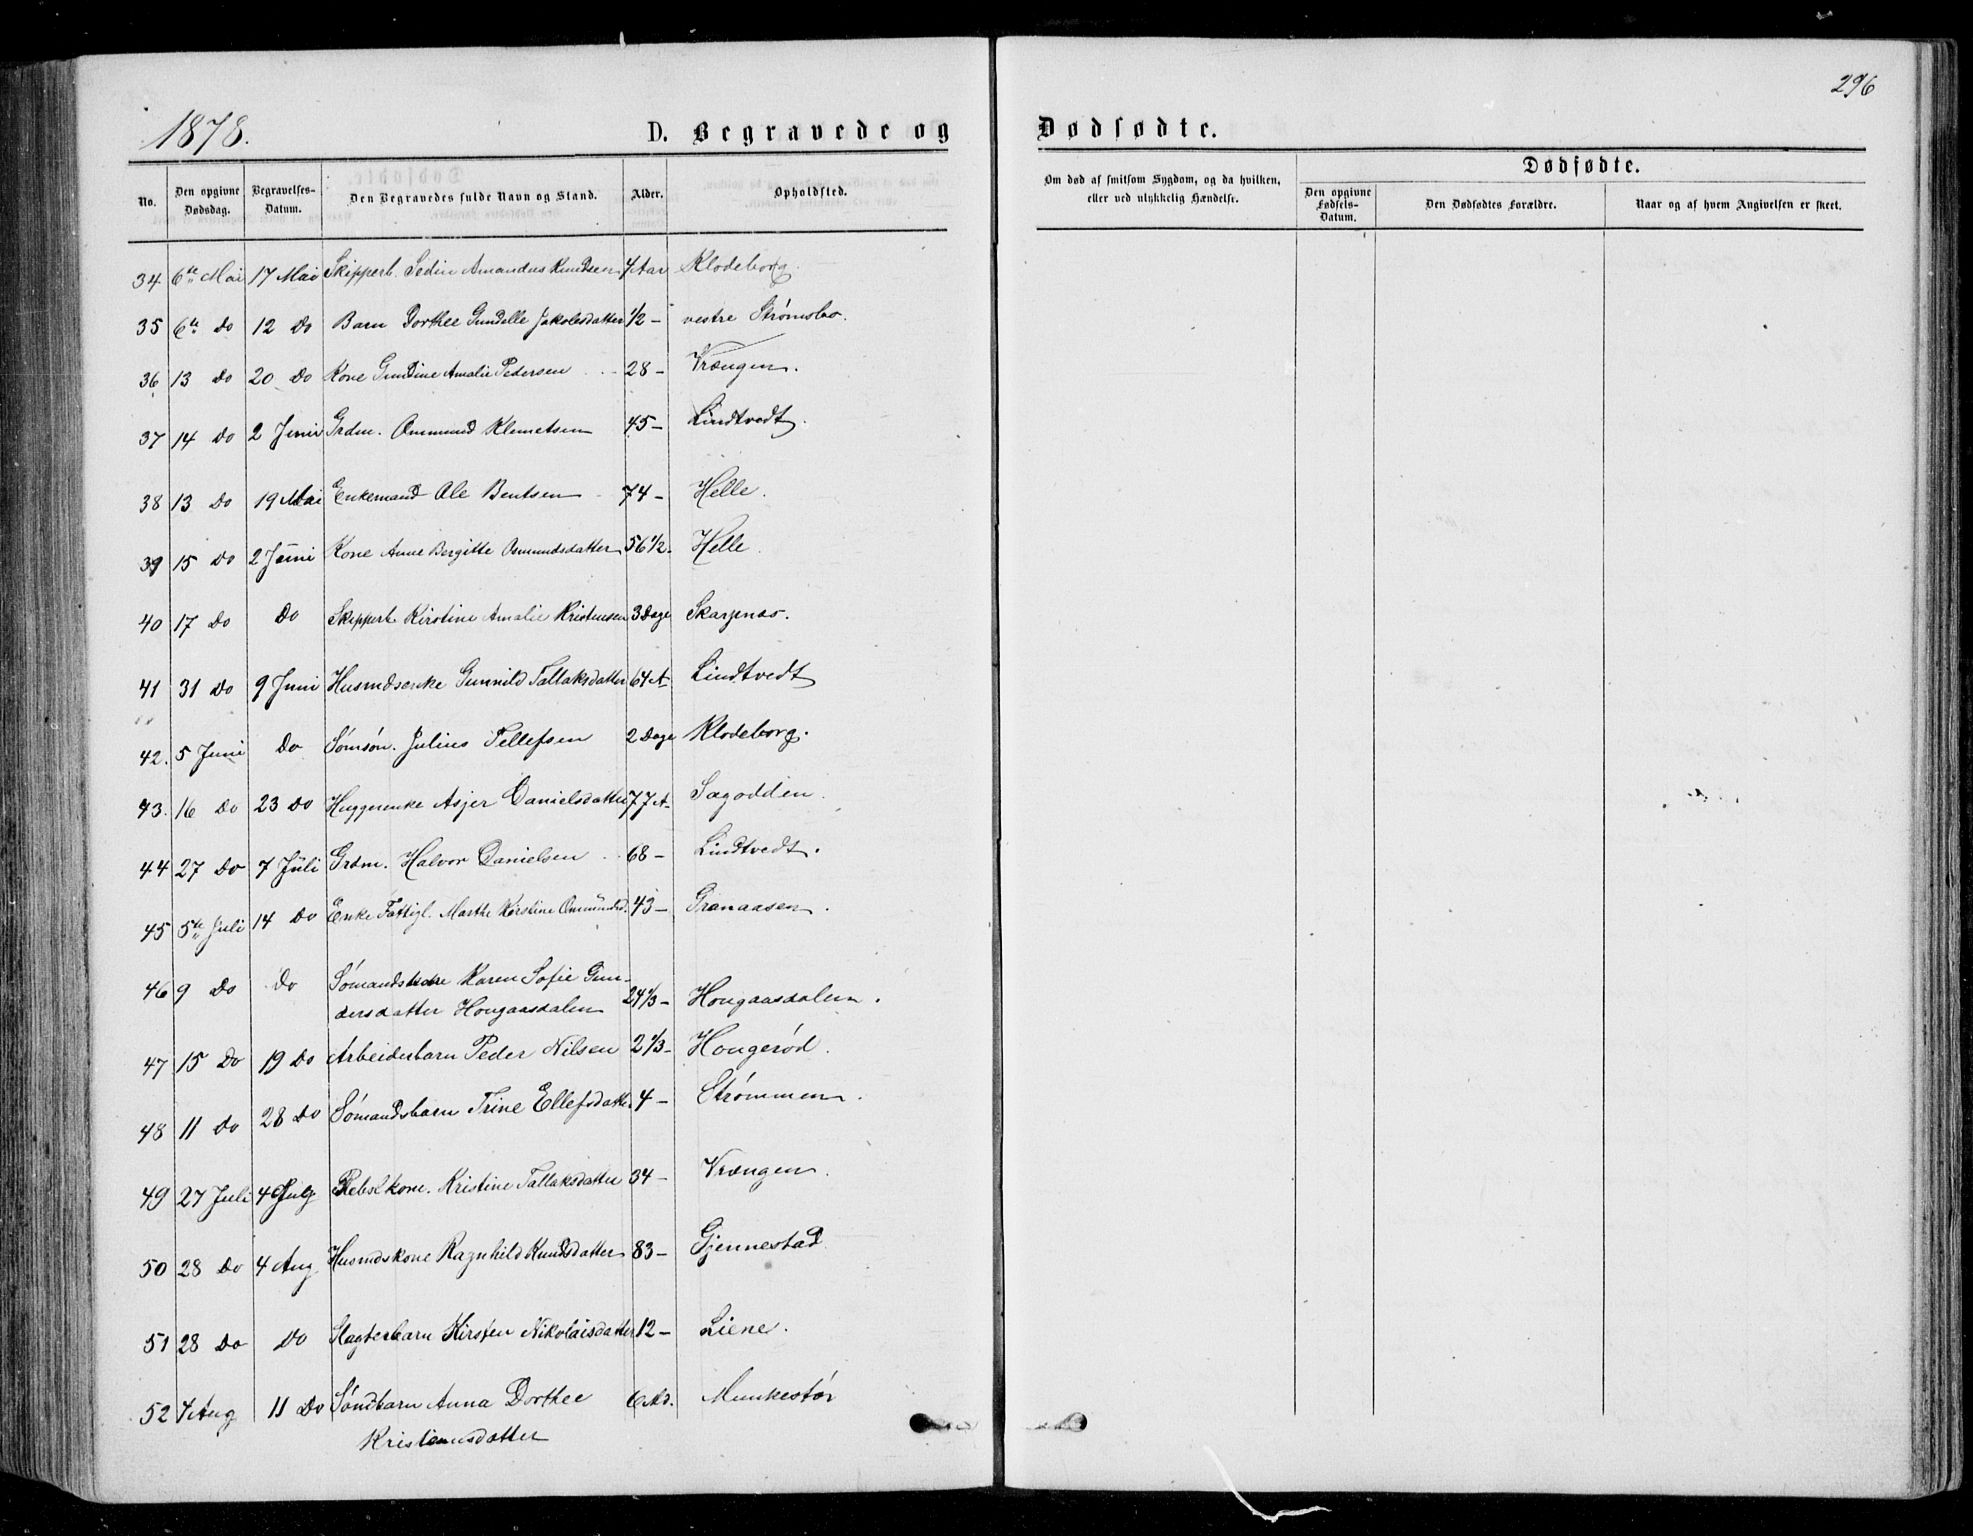 1878.
D. Begravede og
No.
Den opgivne Dødsdag.
Begravelses-Datum.
Den Begravedes fulde Navn og Stand.
Alder.
Opholdsted.
34 6te Mai 17 Mai Skipperb. Sedin Amandus Knudsen 4 Aar Klodeborg.
35 6te Do 12 Do Barn Dorthee Gundelle Jakobsdatter 1/2 - vestre Strømsbo.
36 13 Do 20 Do Kone Gundine Amalie Pedersen 28 - Vrængen.
37 14 Do 2 Juni Grdm. Ommund Klemetsen 45 - Lindtvedt.
38 13 Do 19 Mai Enkemand Ole Bentsen 74 - Helle.
39 15 Do 2 Juni Kone Anne Bergitte Osmundsdatter 56 1/2 - Helle.
40 17 Do Do Skipperb. Kirstine Amalie Kristensen 3 Dage Skarpnes.
41 31 Do 9 Juni Husmdsenke Gunnild Tallaksdatter 64 A Lindtvedt
42. 5 Juni Do Sømsøn. Julius Tellefsen 2 Dage Klodeborg.
43. 16 Do 23 Do Huggerenke Asjer Danielsdatter 77 A Sagodden.
44 27 Do 7 Juli Grdm. Halvor Danielsen 68 - Lindtvedt.
45 5te Juli 14 Do Enke Fattigl. Marthe Kirstine Ommundsd. 43 - Granaasen.
46 9 Do Do Karen Sofie Gun-
dersdatter Hougaasdalen 24 1/3 - Hougaasdalen.
47 15 Do 19 Do Arbeidsbarn Peder Nilsen 2 1/3 - Hougerød.
48 11 Do 28 Do Sømandsbarn Trine Ellefsdatter 4 - Strømmen.
49 27 Juli 4 Kristine Tallaksdatter 34 - Vrængen.
50 28 Do 4 Aug Husmdskone Ragnhild Knudsdatter 83 - Gjennestad
51 28 Do Do Slagterbarn Kirsten Nikolaisdatter 12 - Liene.
52 4 Aug 11 Do Sømdbarn Anna Dorthee 6 Md. Munkestør
Kristensdatter
296
Dødfødte.
Om død af smitsom Sygdom, og da hvilken,
eller ved ulykkelig Hændelse.
Dødfødte.
Den opgivne Fødsels-Datum.
Den Dødfødtes Forældre.
Naar og af hvem Angivelsen er skeet.